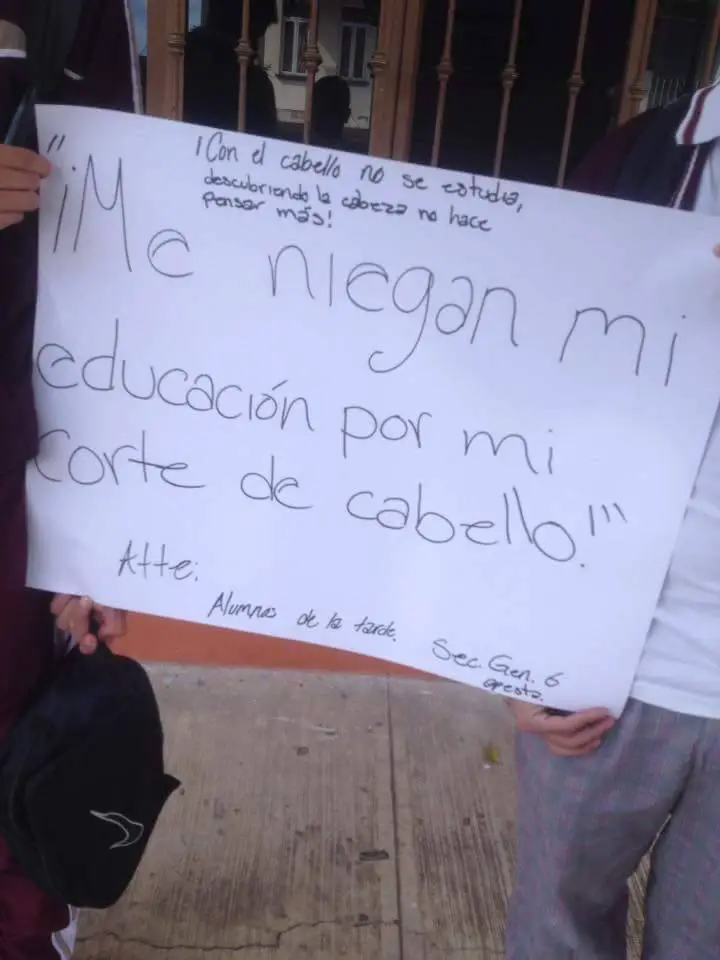 ¡Con el cabello no se estudia,
descubriendo la cabeza no hace
pensar más!
"¡Me niegan mi
educación por mi
corte de cabello!"
Atte:
Alumnos de la tarde.
Sec. Gen. 6
apesta.